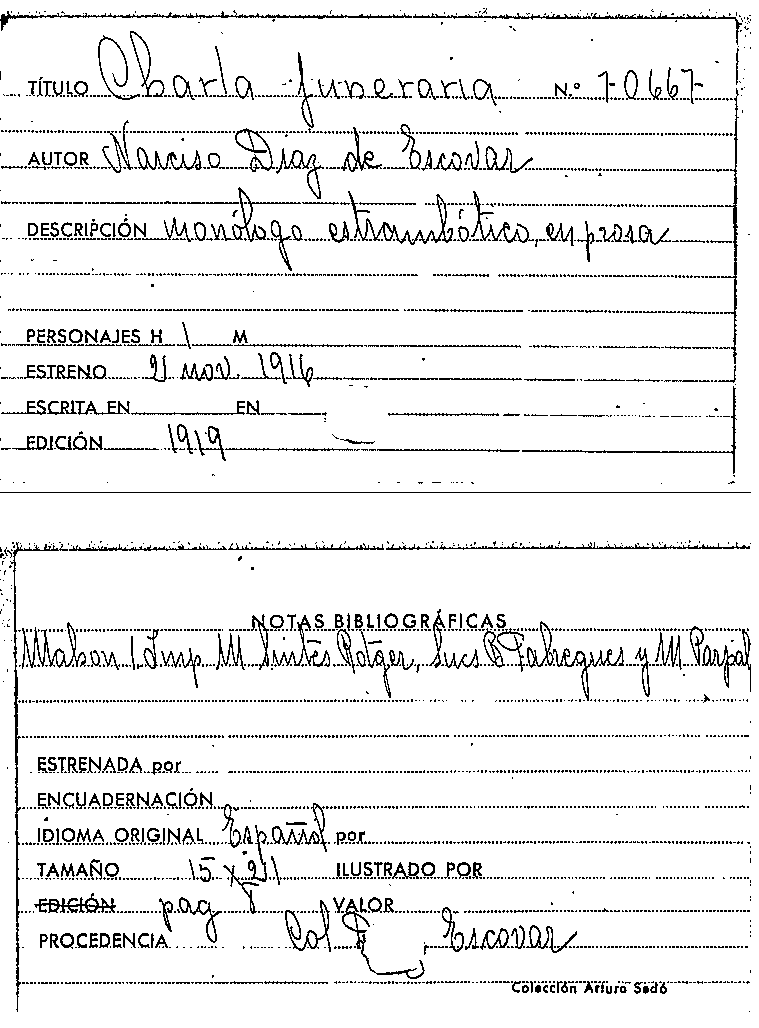 TÍTULO Charla funeraria N.º 7-0667-
AUTOR Narciso Díaz de Escovar
DESCRIPCIÓN monólogo estrambótico, en prosa
PERSONAJES H 1 M
ESTRENO 21 nov. 1916
ESCRITA EN EN
EDICIÓN 1919
NOTAS BIBLIOGRÁFICAS
Mahon, Imp M Sintes Rotger, Sucs B Fabregues y M Parpal
ESTRENADA por
ENCUADERNACIÓN
IDIOMA ORIGINAL Español por
TAMAÑO 15 x 21 ILUSTRADO POR
EDICIÓN pag 8 VALOR
PROCEDENCIA Col D , Escovar
Colección Arturo Sedó